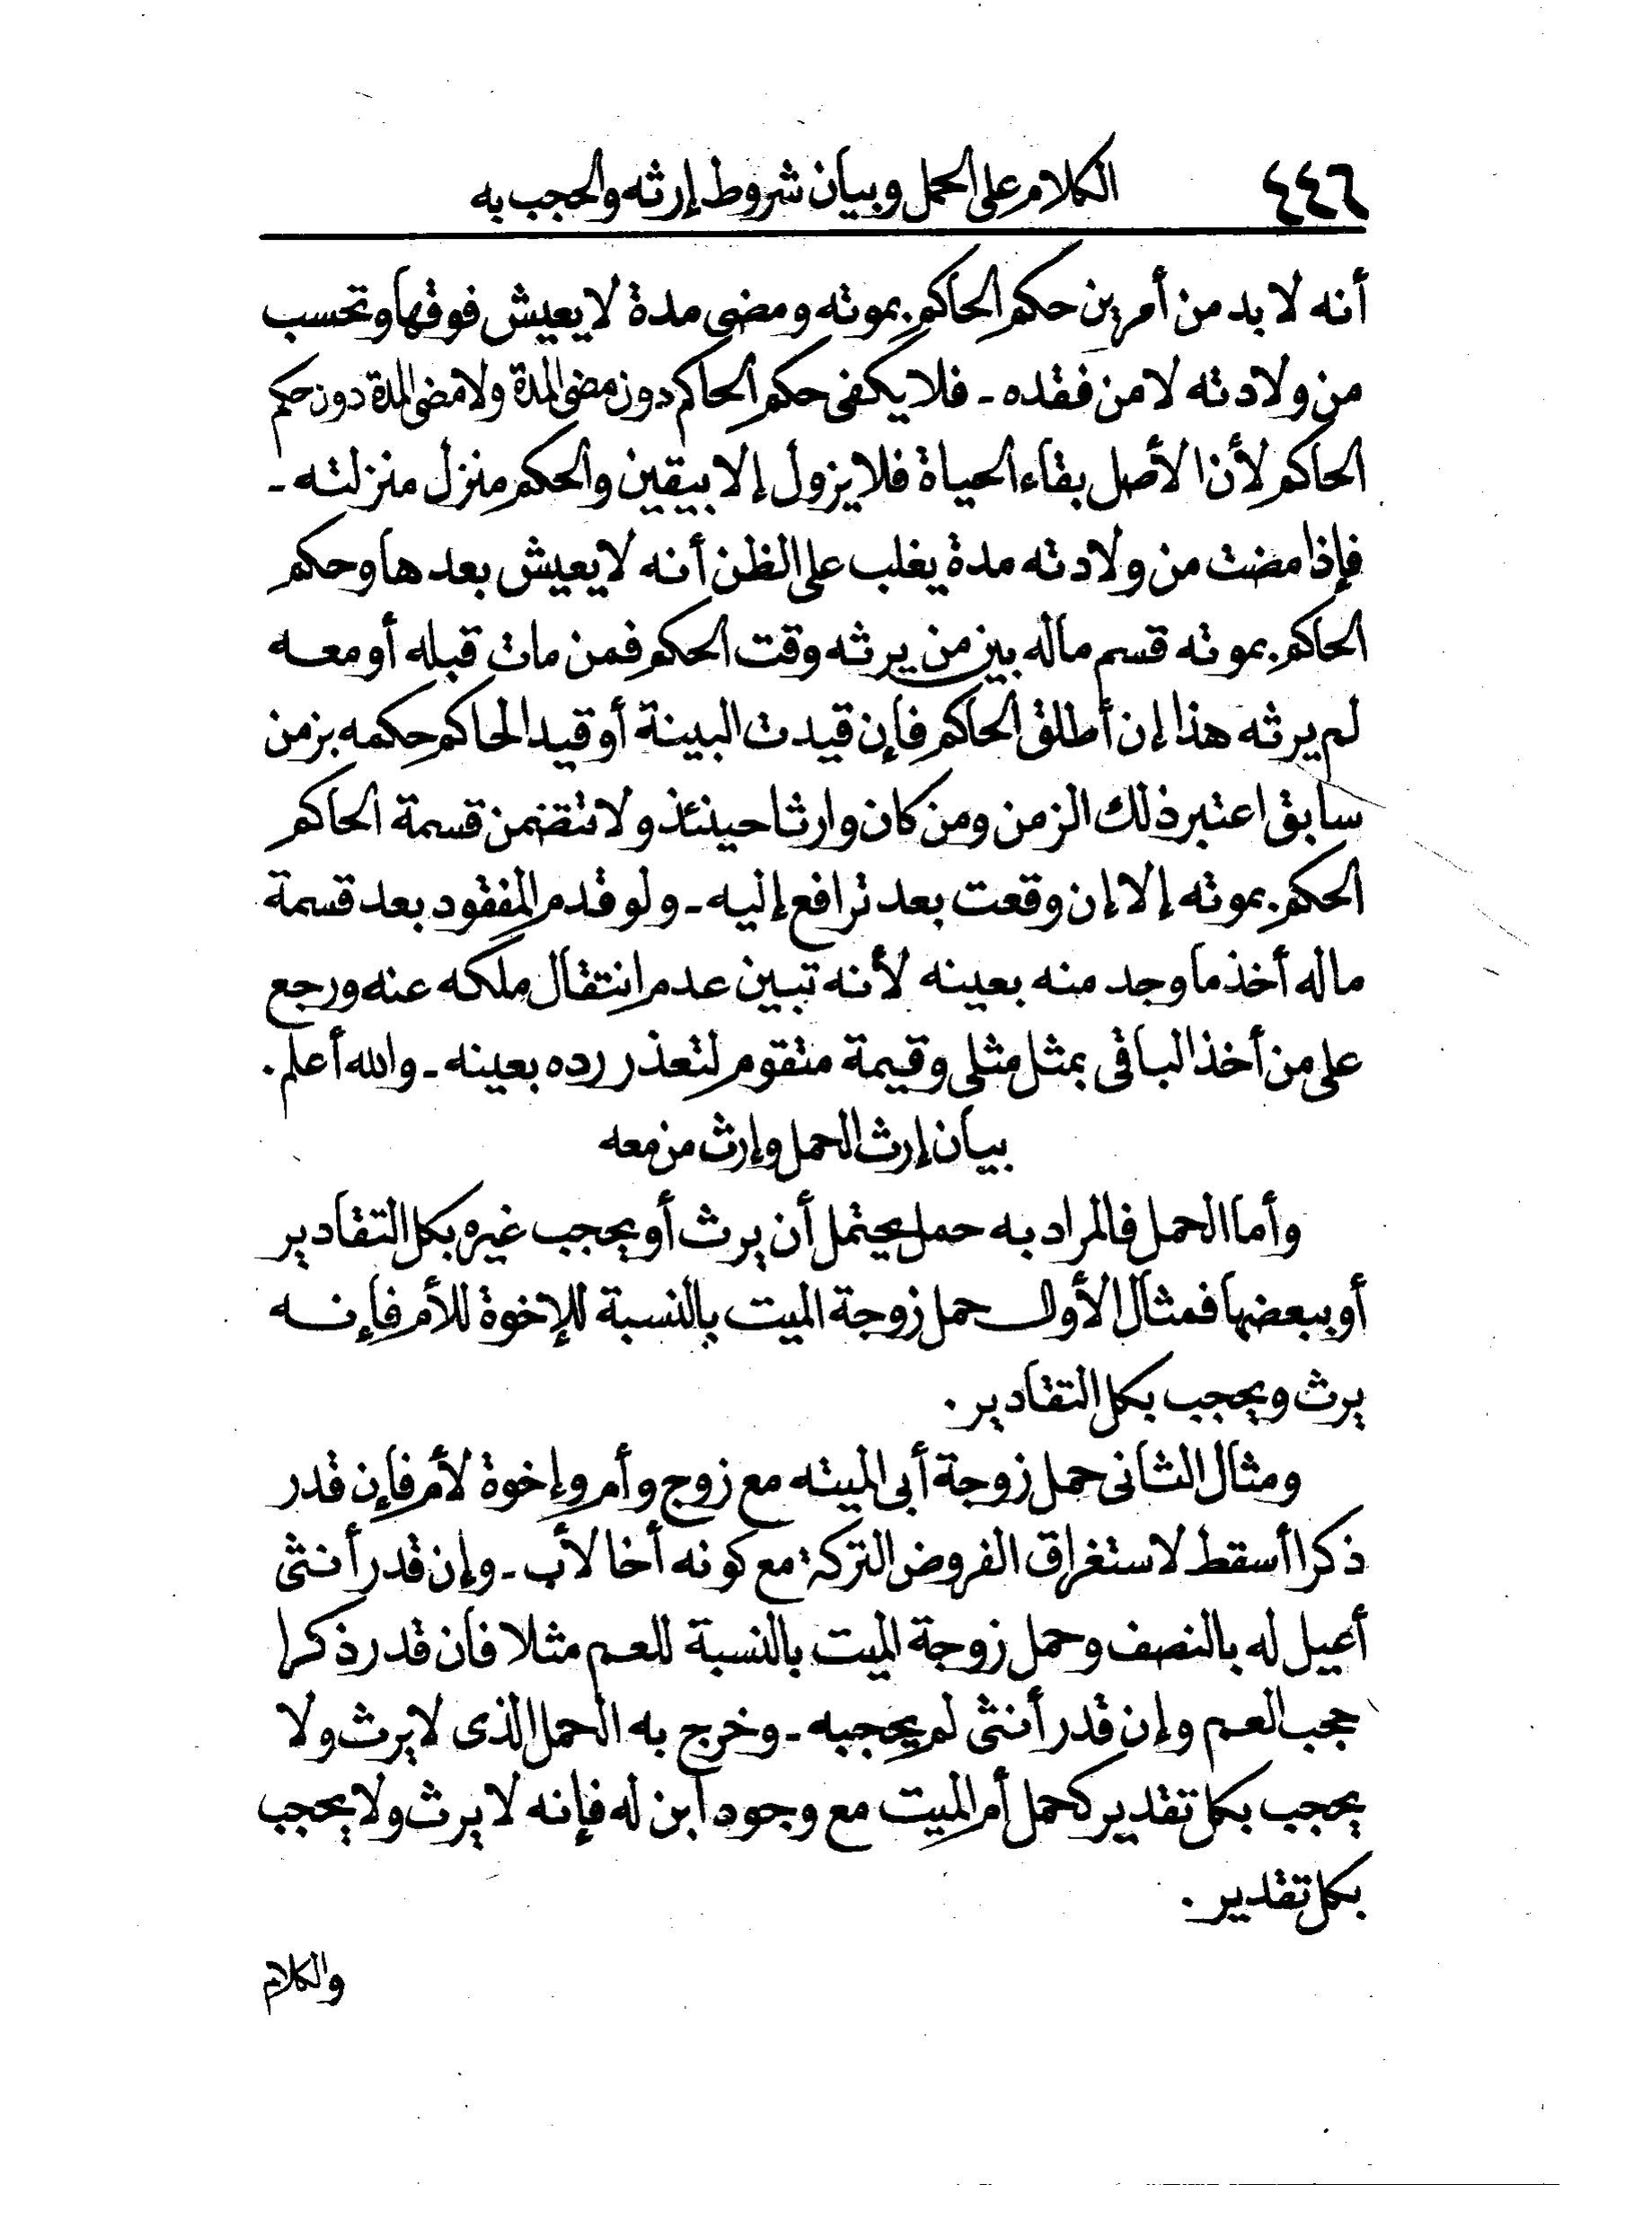 ٤٤٦ الكلام على الحمل وبيان شروط إرثه والحجب به
أنه لا بد من أمرين حكم الحاكم بموته ومضى مدة لا يعيش فوقها وتحسب
من ولادته لا من فقده ـ فلا يكفى حكم الحاكم دون مضى المدة ولا مضى المدة دون حكم
الحاكم لأن الأصل بقاء الحياة فلا يزول إلا بيقين والحكم منزل منزلته ـ
فإذا مضت من ولادته مدة يغلب على الظن أنه لا يعيش بعدها وحكم
الحاكم بموته قسم ماله بين من يرثه وقت الحكم فمن مات قبله أو معه
لم يرثه هذا إن أطلق الحاكم فإن قيدت البينة أو قيد الحاكم حكمه بزمن
سابق اعتبر ذلك الزمن ومن كان وارثا حينئذ ولا تتضمن قسمة الحاكم
الحكم بموته إلا إن وقعت بعد ترافع إليه ـ ولو قدم المفقود بعد قسمة
ماله أخذ ما وجد منه بعينه لأنه تبين عدم انتقال ملكه عنه ورجع
على من أخذ الباقى بمثل مثلى وقيمة متقوم لتعذر رده بعينه ـ والله أعلم .
بيان إرث الحمل وإرث من معه
وأما الحمل فالمراد به حمل يحتمل أن يرث أو يحجب غيره بكل التقادير
أو ببعضها فمثال الأول حمل زوجة الميت بالنسبة للإخوة للأم فإنه
يرث ويحجب بكل التقادير .
ومثال الثانى حمل زوجة أبى الميته مع زوج وأم وإخوة لأم فإن قدر
ذكرا أسقط لاستغراق الفروض التركة مع كونه أخا لأب ـ وإن قدر أنثى
أعيل له بالنصف وحمل زوجة الميت بالنسبة للعم مثلا فان قدر ذكرا
حجب العم وإن قدر أنثى لم يحجبه ـ وخرج به الحمل الذى لا يرث ولا
يحجب بكل تقدير كحمل أم الميت مع وجود ابن له فإنه لا يرث ولا يحجب
بكل تقدير .
والكلام